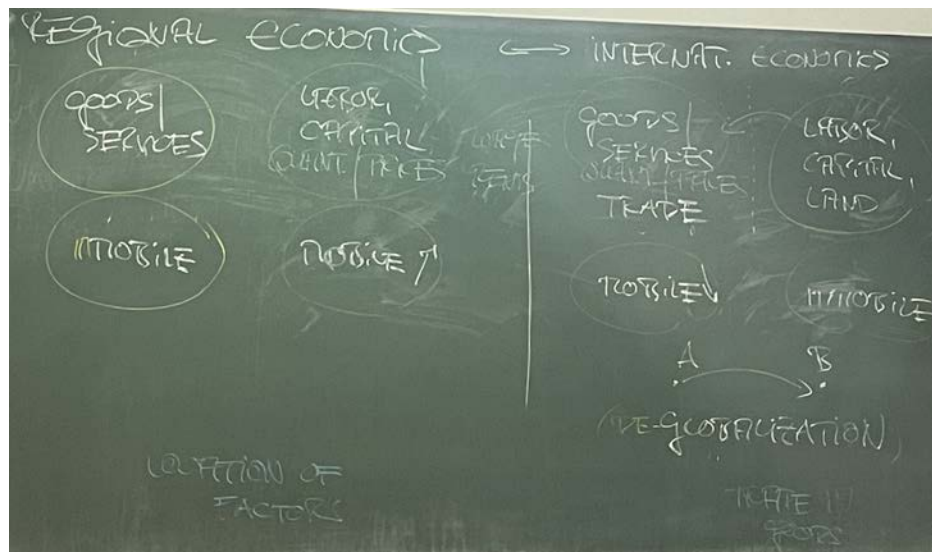 REGIONAL ECONOMICS ⟷ INTERNAT. ECONOMICS
GOODS/
SERVICES
LABOR,
CAPITAL
QUANT./PRICES
WAGE
RENTS
MOBILE
MOBILE ↑
LOCATION OF
FACTORS
GOODS/
SERVICES
QUANT./PRICES
TRADE
LABOR,
CAPITAL,
LAND
MOBILE↓
IMMOBILE
A B
(DE-GLOBALIZATION)
TRADE IN
GOODS